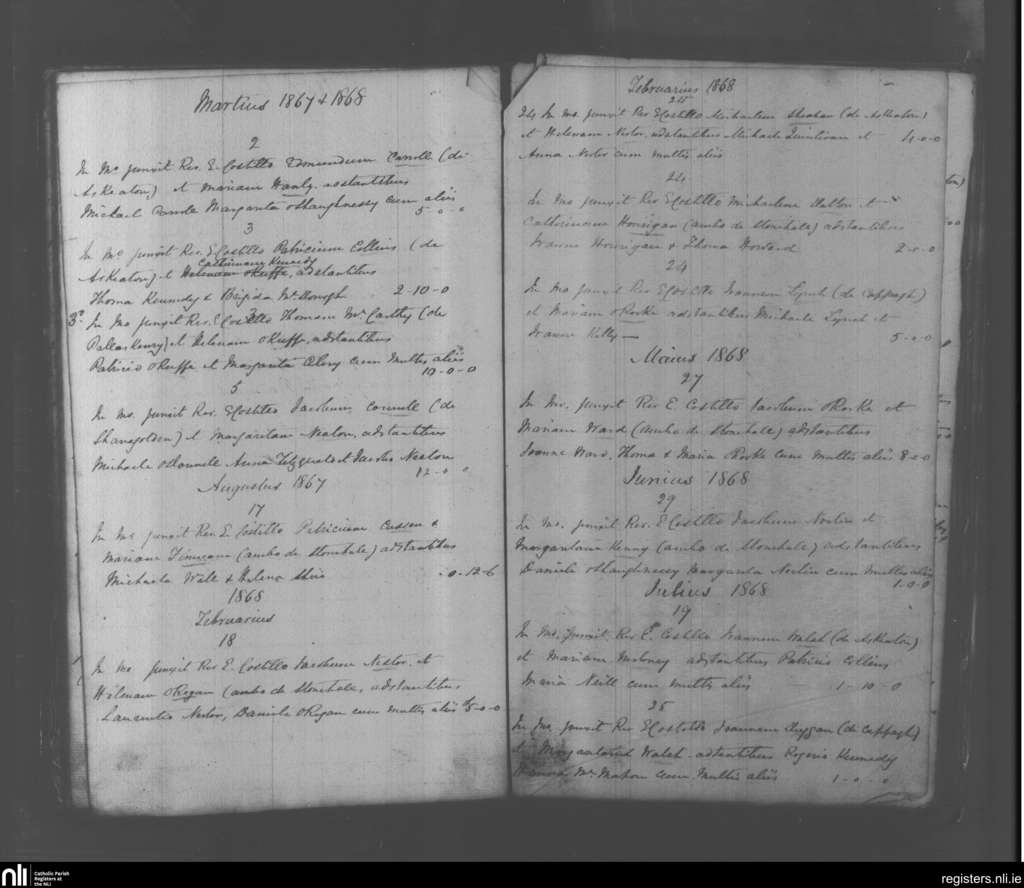 Martius 1867 & 1868
2
In Mo junxit Rev. E. Costello Edmundum Carroll (de
Askeaton) et Mariam Hanly adstantibus
Michael Margarita OShaughnessy cum aliis
5-0-0
3
In Mo junxit Rev. E Costello Patricium Collins (de
Catherinam Kennedy
Askeaton) et Helenam OKeeffe, adstantibus
Thoma Kennedy & Brigida McDonogh 2-10-0
3o In Mo junxit Rev. E Costello Thomam McCarthy (de
Pallaskenry) et Helenam OKeeffe, adstantibus
Patricio OKeeffe et Margarita cum multis aliis
10-0-0
5
In Mo. junxit Rev. E Costello Jacobum Connell (de
Shanagolden) et Margaritam Nealon, adstantibus
Michaele OConnell Anna Fitzgerald et Jacobo Nealon
12-0-0
Augustus 1867
17
In Mo junxit Rev E. Costello Patricium Cussen &
Mariam Finucan (ambo de Stonehall) adstantibus
Michaele Wall & Helena
0-12-6
1868
Februarius
18
In Mo junxit Rev E. Costello Jacobum Nestor et
Helenam ORegan (ambo de Stonehall, adstantibus
Laurentio Nestor, Daniele ORegan cum multis aliis 5-0-0
Februarius 1868
25
24 In Mo. junxit Rev E Costello Michaelem Sheahan (de Askeaton)
et Helenam Nestor, adstantibus Michaele Quinlivan et 4-0-0
Anna Nestor cum multis aliis
24
In Mo junxit Rev E Costello Michaelem et
Catherinam Hourigan (ambo de Stonehall) adstantibus
Joanne Hourigan & Thoma Howard 2-0-0
24
In Mo junxit Rev E Costello Joannem Lynch (de Cappagh)
et Mariam ORorke adstantibus Michaele Lynch et
Joanne Kelly 5-0-0
Maius 1868
27
In Mo. junxit Rev E. Costello Jacobum ORorke et
Mariam Ward (ambo de Stonehall) adstantibus
Joanne Ward, Thoma & Maria ORorke cum multis aliis 8-0-0
Junius 1868
29
In Mo. junxit Rev. E Costello Jacobum et
Margaritam Kenny (ambo de Stonehall) adstantibus
Daniele OShaughnessy Margarita cum multis aliis
1-0-0
Julius 1868
19
In Mo. junxit Rev E. Costello Joannem Walsh (de Askeaton)
et Mariam Mulvney adstantibus Patricio Collins
Maria Neill cum multis aliis 1-10-0
25
In Mo. junxit Rev E Costello Joannem (de Cappagh)
et Margaritam Walsh adstantibus Rogerio Kennedy
McMahon cum multis aliis 1-0-0
nli
Catholic Parish
Registers at
the NLI
registers.nli.ie